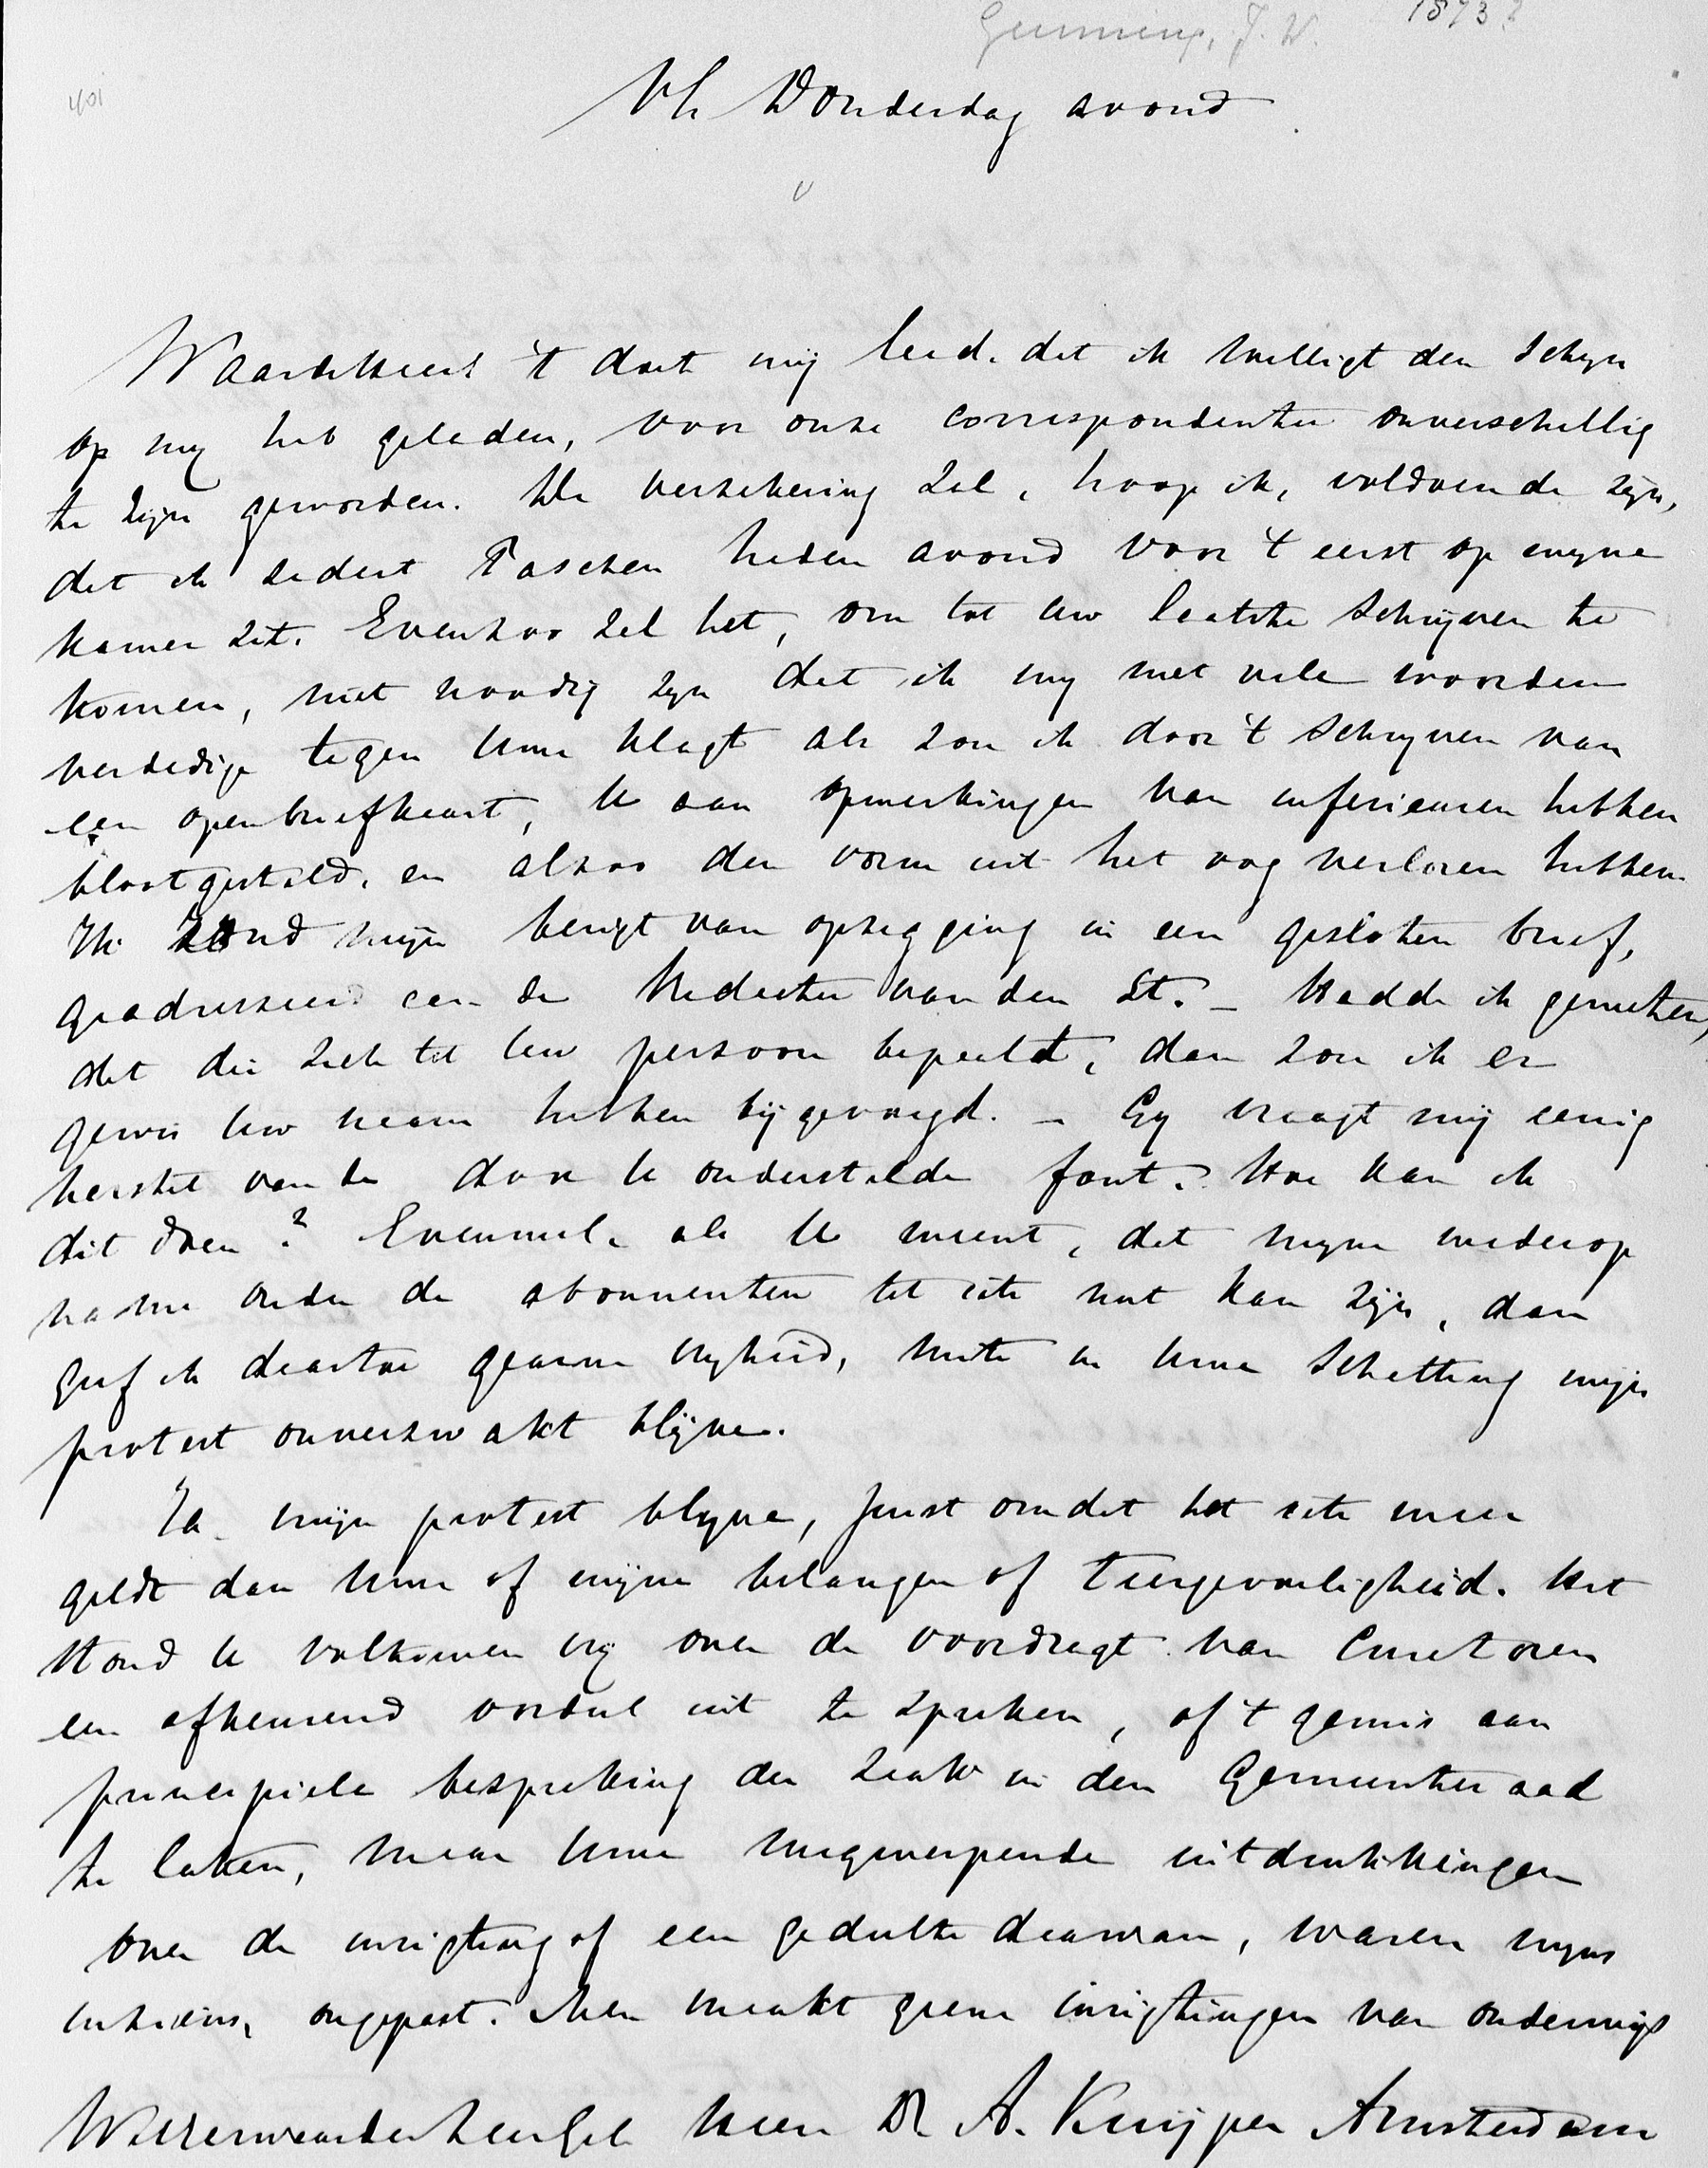 Gunning, J. W. 1873?
401
Vh Donderdag avond
Waardste 't doet mij leed, dat ik welligt den schijn
op mij heb geladen, voor onze correspondentie onverschillig
te zijn geworden. De verzekering zal, hoop ik, voldoende zijn,
dat ik sedert Paschen heden avond voor 't eerst op mijne
kamer zit. Evenzoo zal het, om tot uw laatste schrijven te
komen, niet noodig zijn dat ik mij met vele woorden
verdedige tegen uwe klagt als zou ik door 't schrijven van
een open briefkaart, U aan opmerkingen van inferieuren hebben
blootgesteld, en alzoo den vorm uit het oog verloren hebben.
Ik zond mijn berigt van opzegging in een gesloten brief,
geadresseerd aan de Redactie van den St. – Hadde ik geweten,
dat die zich tot uw persoon bepaald, dan zou ik er
gewis uw naam hebben bijgevoegd. – Gij vraagt mij eenig
herstel van de door U onderstelde fout. Hoe kan ik
dit doen? Evenwel, als U meent, dat mijne wederop
name onder de abonnenten tot iets nut kan zijn, dan
geef ik daartoe gaarne vrijheid, mits in uwe schatting mijn
protest onverzwakt blijve.
Ja mijn protest blijve, juist omdat het iets meer
geldt dan uwe of mijne belangen of teergevoeligheid. Het
stond U volkomen vrij over de voordragt van Curatoren
een afkeurend oordeel uit te spreken, of 't gemis aan
principiele bespreking der zaak in den Gemeenteraad
te laken, maar uwe wegwerpende uitdrukkingen
over de inrigting of een gedeelte daarvan, waren mijns
inziens, ongepast. Men maakt geene inrigtingen van onderwijs
Weleerwaarde Zeergel. Heer Dr A. Kuijper Amsterdam